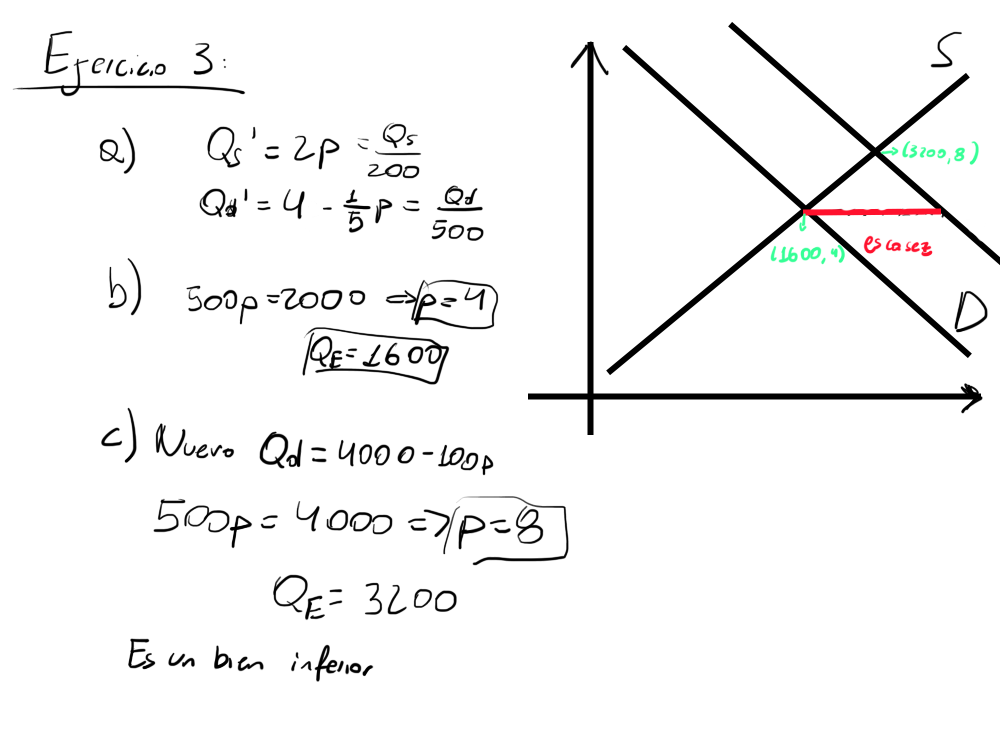 Ejercicio 3:
a) Qs' = 2p = Qs/200
Qd' = 4 - 1/5 p = Qd/500
b) 500p = 2000 => p = 4
QE = 1600
c) Nuevo Qd = 4000 - 100p
500p = 4000 => p = 8
QE = 3200
Es un bien inferior
S
→ (3200, 8)
(1600, 4)
escasez
D